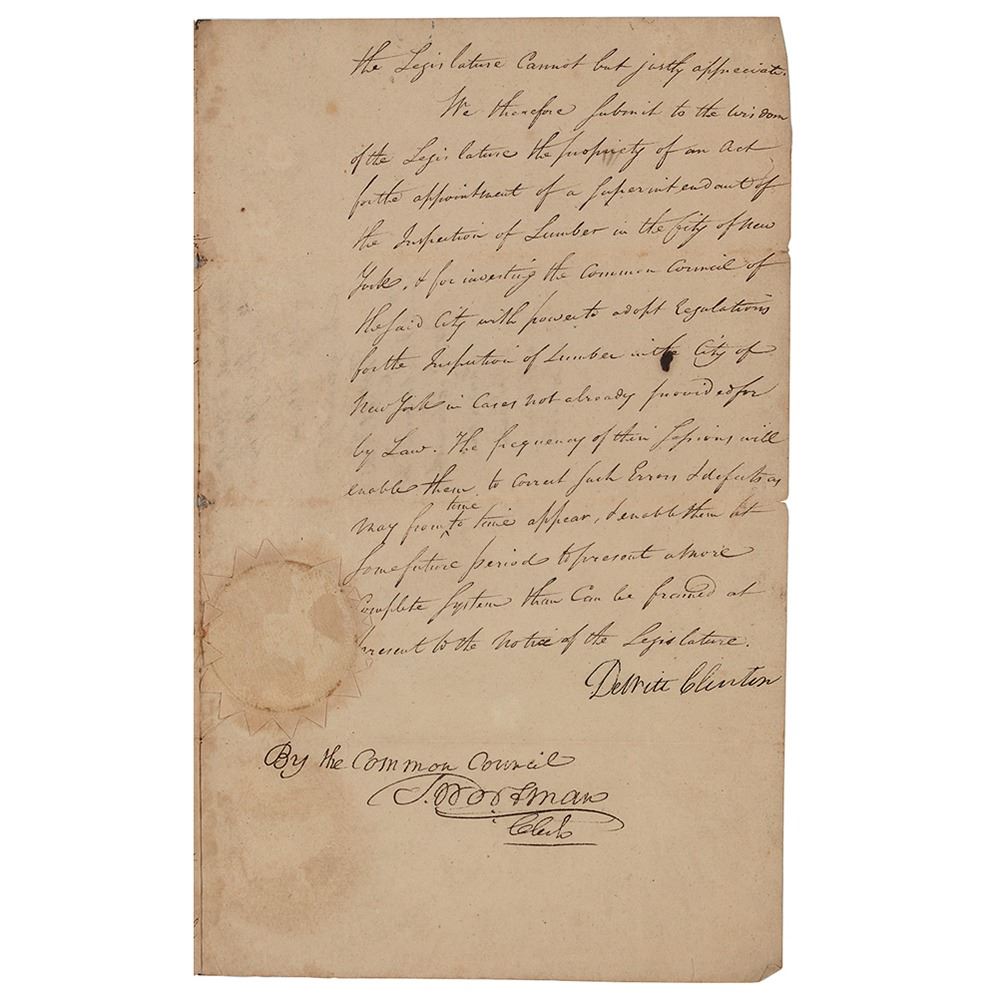 the Legislature Cannot but justly appreciate.
We therefore submit to the wisdom
of the Legislature the propriety of an Act
for the appointment of a Superintendant of
the Inspection of Lumber in the City of New
York, & for investing the Common Council of
the said City with power to adopt Regulations
for the Inspection of Lumber in the City of
New York in Cases not already provided for
by Law. The frequency of their Sessions will
enable them to correct such Errors & defects as
may from time to time appear, & enable them at
some future period to present a more
Complete System than Can be framed at
present to the Notice of the Legislature.
DeWitt Clinton
By the Common Council
T. Wortman
Clerk